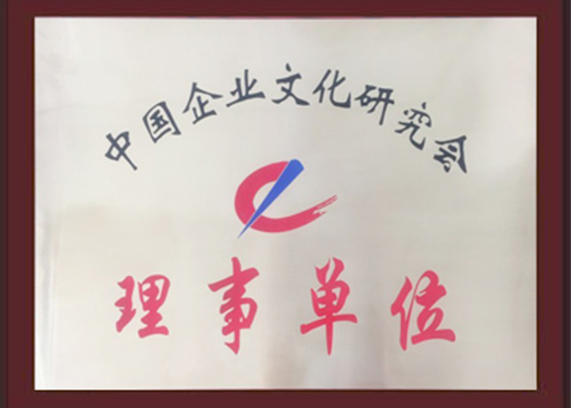 中国企业文化研究会
理事单位